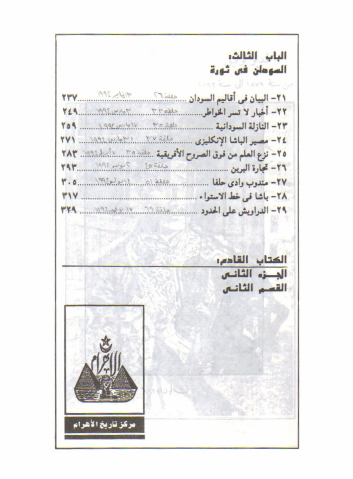 الباب الثالث:
السودان فى ثورة
٢١- البيان فى أقاليم السودان ٢٣٧
٢٢- أخبار لا تسر الخواطر ٢٤٩
٢٣- النازلة السودانية ٢٥٩
٢٤- مصير الباشا الإنكليزى ٢٧١
٢٥- نزع العلم من فوق الصروح الأفريقية ٢٨٣
٢٦- تجارة البرين ٢٩٣
٢٧- مندوب وادى حلفا ٣٠٥
٢٨- باشا فى خط الاستواء ٣١٧
٢٩- الدراويش على الحدود ٣٢٩
الكتاب القادم:
الجزء الثانى
القسم الثانى
الأهرام
مركز تاريخ الأهرام